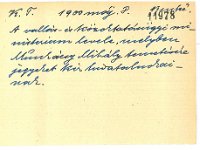 K. T. 1900 máj. 8.
11978
A vallás- és közoktatásügyi mi-
nisterium levele, melyben
Munkácsy Mihály temetésére
jegyeket kér hivatalnokai-
nak.